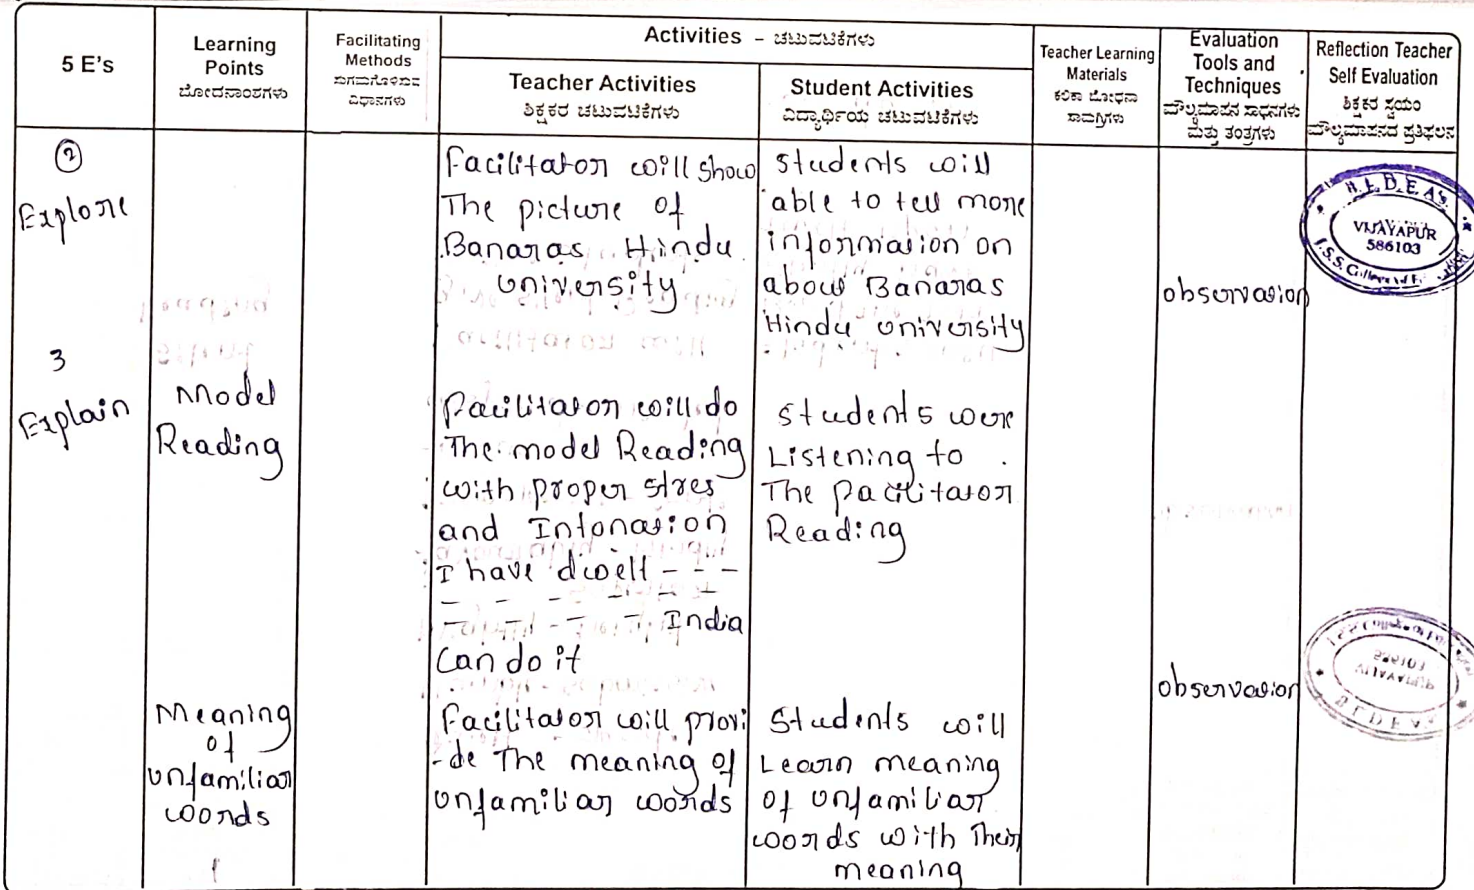 5 E's
Learning
Points
ಬೋಧನಾಂಶಗಳು
Facilitating
Methods
ಸುಗಮಗೊಳಿಸುವ
ವಿಧಾನಗಳು
Activities – ಚಟುವಟಿಕೆಗಳು
Teacher Activities
ಶಿಕ್ಷಕರ ಚಟುವಟಿಕೆಗಳು
Student Activities
ವಿದ್ಯಾರ್ಥಿಯ ಚಟುವಟಿಕೆಗಳು
Teacher Learning
Materials
ಕಲಿಕಾ ಬೋಧನಾ
ಸಾಮಗ್ರಿಗಳು
Evaluation
Tools and
Techniques
ಮೌಲ್ಯಮಾಪನ ಸಾಧನಗಳು
ಮತ್ತು ತಂತ್ರಗಳು
Reflection Teacher
Self Evaluation
ಶಿಕ್ಷಕರ ಸ್ವಯಂ
ಮೌಲ್ಯಮಾಪನದ ಪ್ರತಿಫಲನ
2
Explore
Facilitator will show
The picture of
Banaras Hindu
University
Students will
able to tell more
information on
about Banaras
Hindu University
observation
B.L.D.E.A'S.
VIJAYAPUR
586103
J.S.S. College of
3
Explain
Model
Reading
Facilitator will do
The model Reading
with proper stres
and Intonation
I have dwell - - -
- - - - - -
- - - - - India
Can do it
Students were
Listening to
The Facilitator
Reading
observation
Meaning
of
unfamiliar
words
Facilitator will provi
-de The meaning of
unfamiliar words
Students will
Learn meaning
of unfamiliar
words with Their
meaning